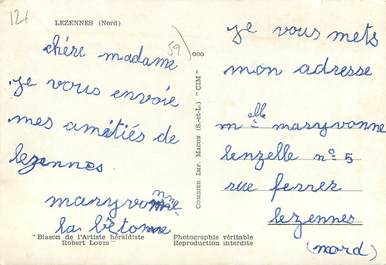 LEZENNES (Nord)
121
59
chère madame
je vous envoie
mes amétiés de
lezennes
maryvonne
la bêtonne
"Blason de l'Artiste héraldiste
Robert Louis"
Photographie véritable
Reproduction interdite
COMBIER IMP. MACON (S.-et-L.) "CIM"
je vous mets
mon adresse
melle maryvonne
lenzelle n° 5
rue ferrer
lezennes
(nord)